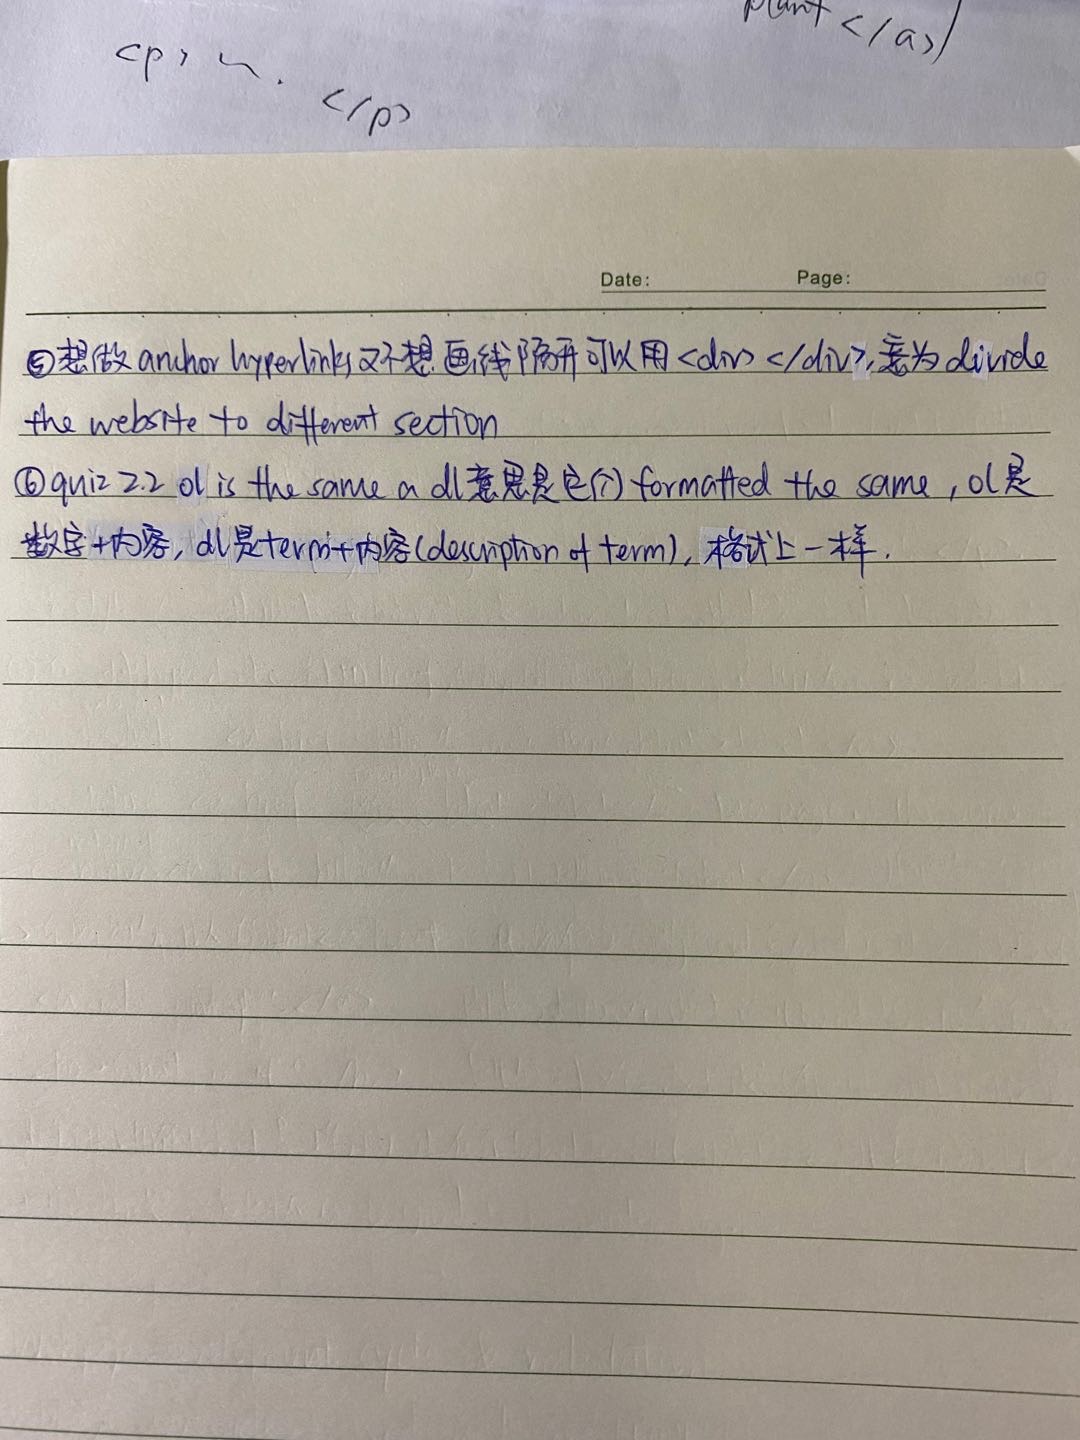 plant </a>
<p> ~ .
</p>
Date: Page:
⑤想做 anchor hyperlinks 又不想画线隔开可以用 <div> </div>, 意为 divide
the website to different section
⑥quiz 2.2 ol is the same a dl 意思是它们 formatted the same, ol 是
数字+内容, dl 是 term+内容(description of term), 格式上一样.